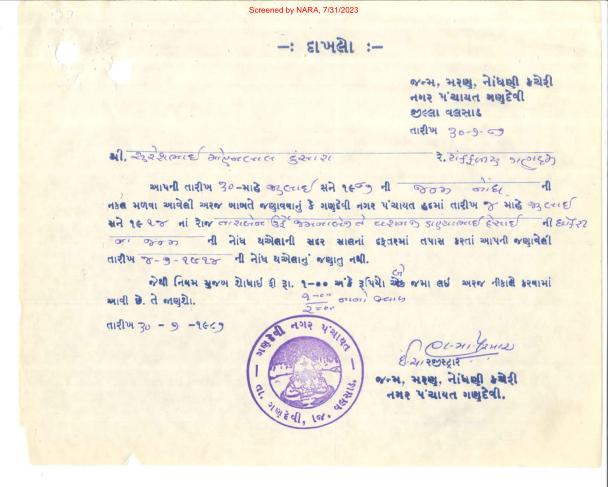 Screened by NARA, 7/31/2023
—: દાખલો :—
જન્મ, મરણ, નોંધણી કચેરી
નગર પંચાયત ગણદેવી
જીલ્લા વલસાડ
તારીખ ૩૦-૭-૮૭
શ્રી. સુરેશભાઈ મોહનલાલ કંસારા રે.
આપની તારીખ ૩૦-માહે જુલાઈ સને ૧૯૮૭ ની જન્મ નોંધ ની
નકલ મળવા આવેલી અરજ બાબતે જણાવવાનું કે ગણદેવી નગર પંચાયત હદમાં તારીખ ૪ માહે જુલાઈ
સને ૧૯૨૪ નાં રોજ તારાબેન ઉર્ફે જમનાબેન તે દેસાઈ ની દીકરી
ના જન્મ ની નોંધ થએલાની સદર સાલનાં દફતરમાં તપાસ કરતાં આપની જણાવેલી
તારીખ ૪-૭-૧૯૨૪ ની નોંધ થએલાનું જણાતુ નથી.
જેથી નિયમ મુજબ શોધાઈ ફી રૂા. ૧-૦૦ અંકે રૂપિયો એક બે જમા લઈ અરજ નીકાલ કરવામાં
આવી છે. તે જાણશો.
૧-૦૦
૨-૦૦
તારીખ ૩૦-૭-૧૯૮૭
ગણદેવી નગર પંચાયત
તા. ગણદેવી, જિ. વલસાડ.
રજીસ્ટ્રાર
જન્મ, મરણ, નોંધણી કચેરી
નગર પંચાયત ગણદેવી.